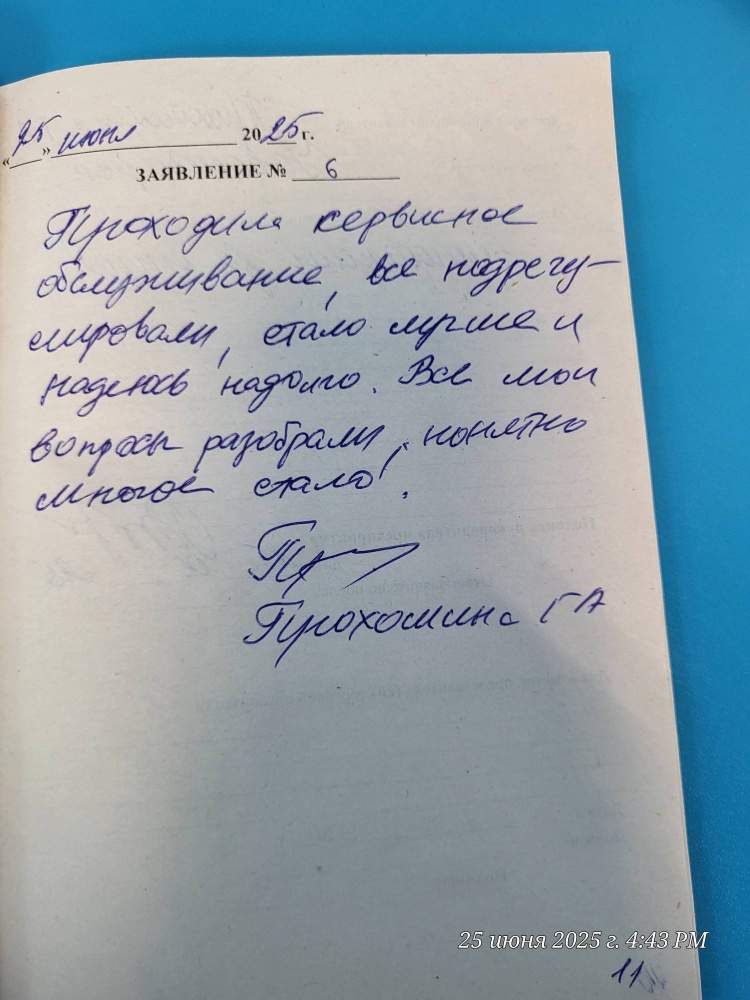 «25» июня 2025 г.
ЗАЯВЛЕНИЕ № 6
Проходила сервисное
обслуживание, все подрегу-
лировали, стало лучше и
надеюсь надолго. Все мои
вопросы разобрали, понятно
многое стало!
Прохомина Г А
25 июня 2025 г. 4:43 PM
11